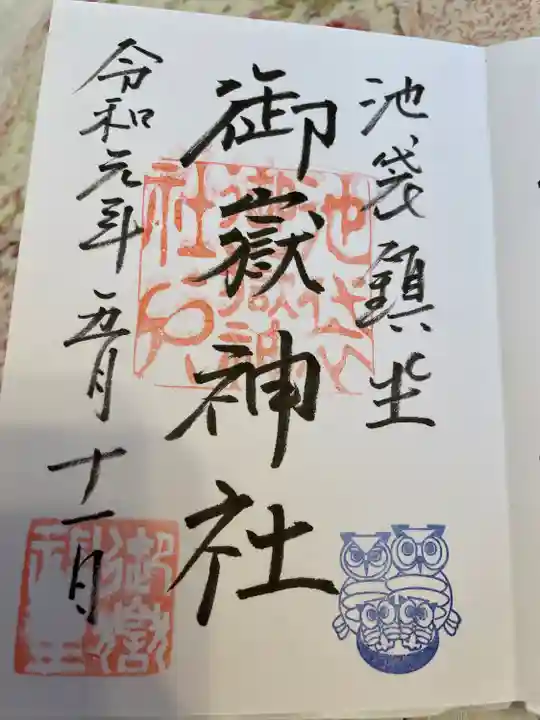 池袋鎮坐
御嶽神社
令和元年五月十一日
池袋御嶽神社印
御嶽